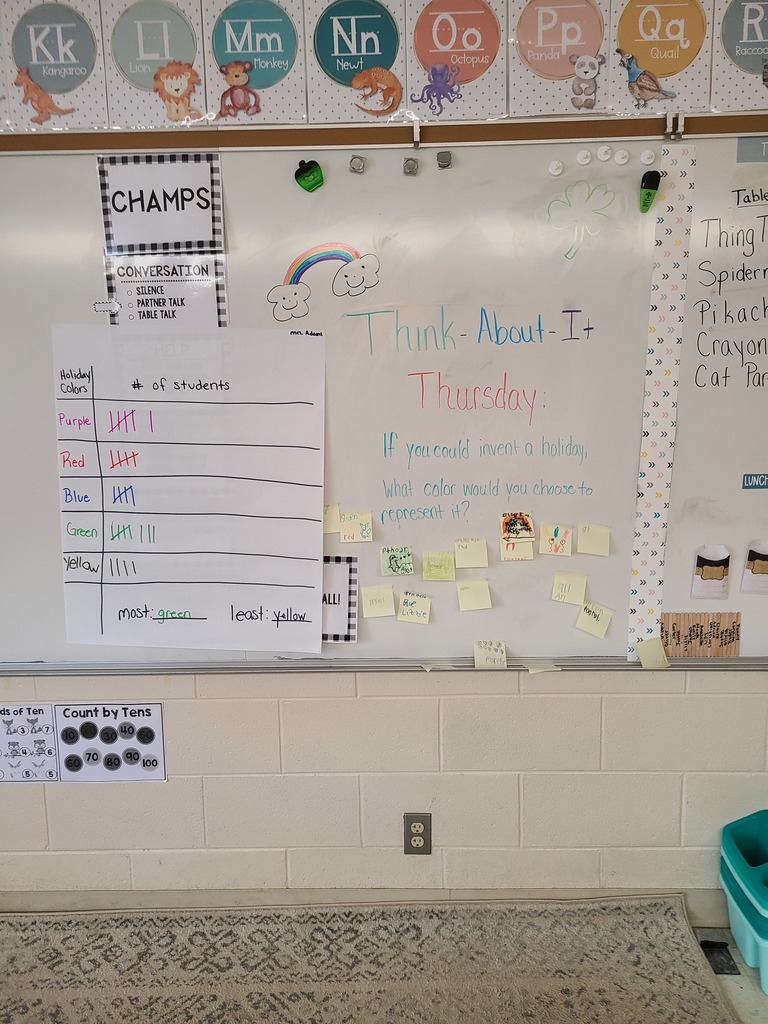 Kk
Kangaroo
Ll
Lion
Mm
Monkey
Nn
Newt
Oo
Octopus
Pp
Panda
Qq
Quail
R
CHAMPS
CONVERSATION
SILENCE
PARTNER TALK
TABLE TALK
Holiday Colors # of students
Purple
Red
Blue
Green
Yellow
most: green least: yellow
Think-About-It
Thursday:
If you could invent a holiday,
What color would you choose to
represent it?
red
Blue
ALL!
Table
Thing T
Spiderm
Pikach
Crayon
Cat Par
LUNCH
ds of Ten
3 7
4 6
5 5
Count by Tens
10 30 40 50
60 70 80 90 100